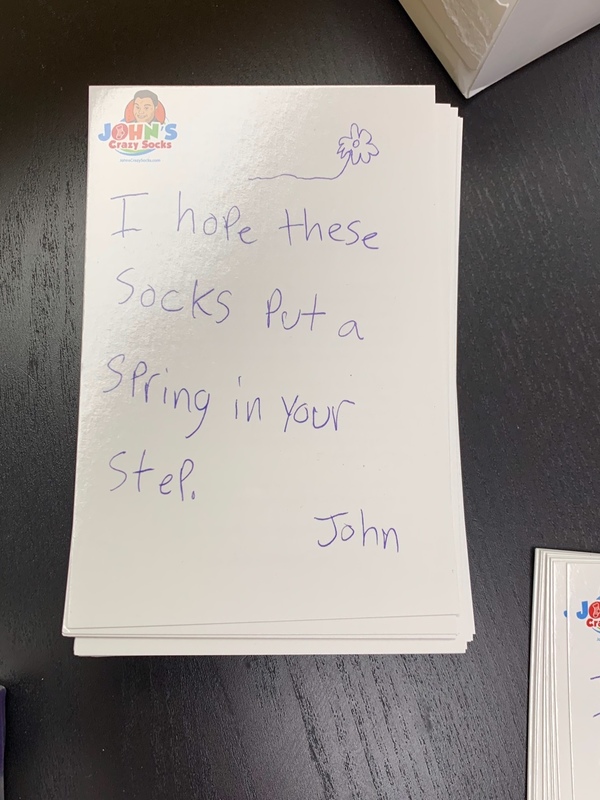 JOHN'S
Crazy Socks
I hope these
Socks Put a
Spring in your
Step.
John